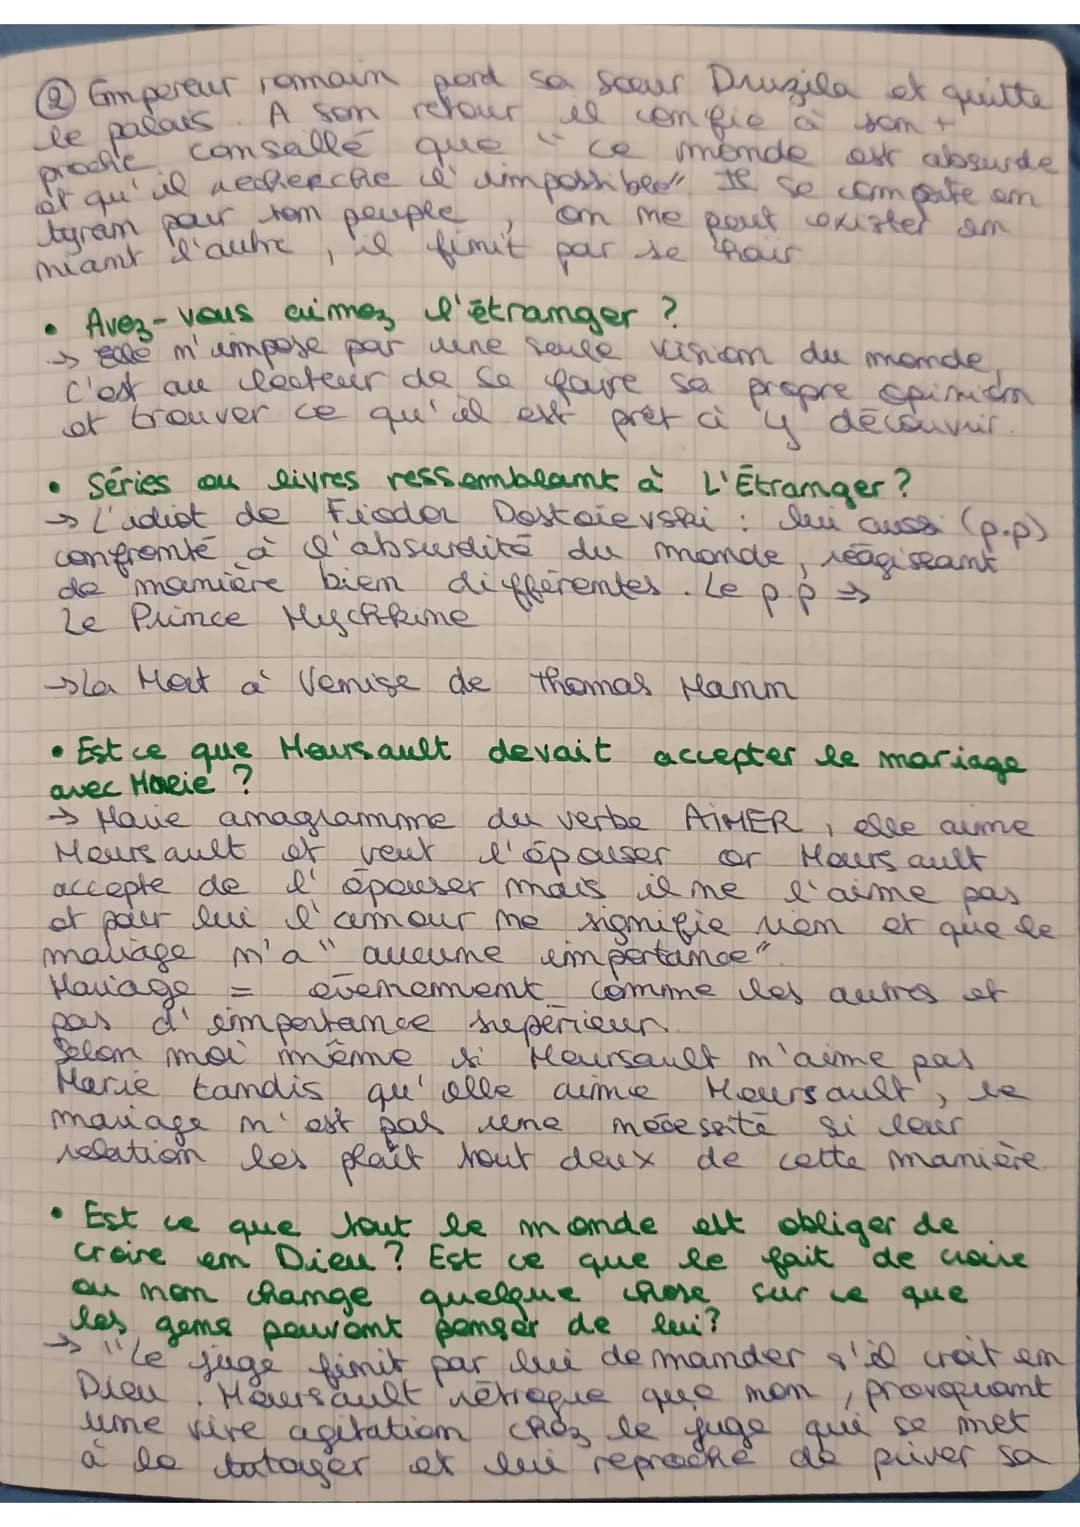 ② Empereur romain perd sa soeur Druzila et quitte
le palais. A son retour il confie à son +
proche consallé que " ce monde est absurde
et qu'il recherche l'impossible". Il se comporte en
tyran pour son peuple, on ne peut exister en
niant l'autre, il finit par se haïr
• Avez-vous aimez l'étranger ?
→ Elle n'impose par une seule vision du monde,
c'est au lecteur de se faire sa propre opinion
et trouver ce qu'il est prêt à y découvrir.
• Séries ou livres ressemblant à L'Étranger ?
→ L'idiot de Fiodor Dostoïevski : lui aussi (p.p)
confronté à l'absurdité du monde, réagissant
de manière bien différentes. Le p.p ⇒
Le Prince Mychkine
→ La Mort à Venise de Thomas Mann
• Est ce que Meursault devait accepter le mariage
avec Marie ?
→ Marie anagramme du verbe AIMER, elle aime
Meursault et veut l'épouser or Meursault
accepte de l'épouser mais il ne l'aime pas
et pour lui l'amour ne signifie rien et que le
mariage n'a "aucune importance".
Mariage = évènement comme les autres et
pas d'importance supérieur.
Selon moi même si Meursault n'aime pas
Marie tandis qu'elle aime Meursault, le
mariage n'est pas une nécessité si leur
relation les plaît tout deux de cette manière.
• Est ce que tout le monde est obliger de
croire en Dieu ? Est ce que le fait de croire
ou non change quelque chose sur ce que
les gens peuvent penser de lui ?
→ "Le juge finit par lui demander s'il croit en
Dieu. Meursault rétroque que non, provoquant
une vive agitation chez le juge qui se met
à le tutoyer et lui reproche de priver sa